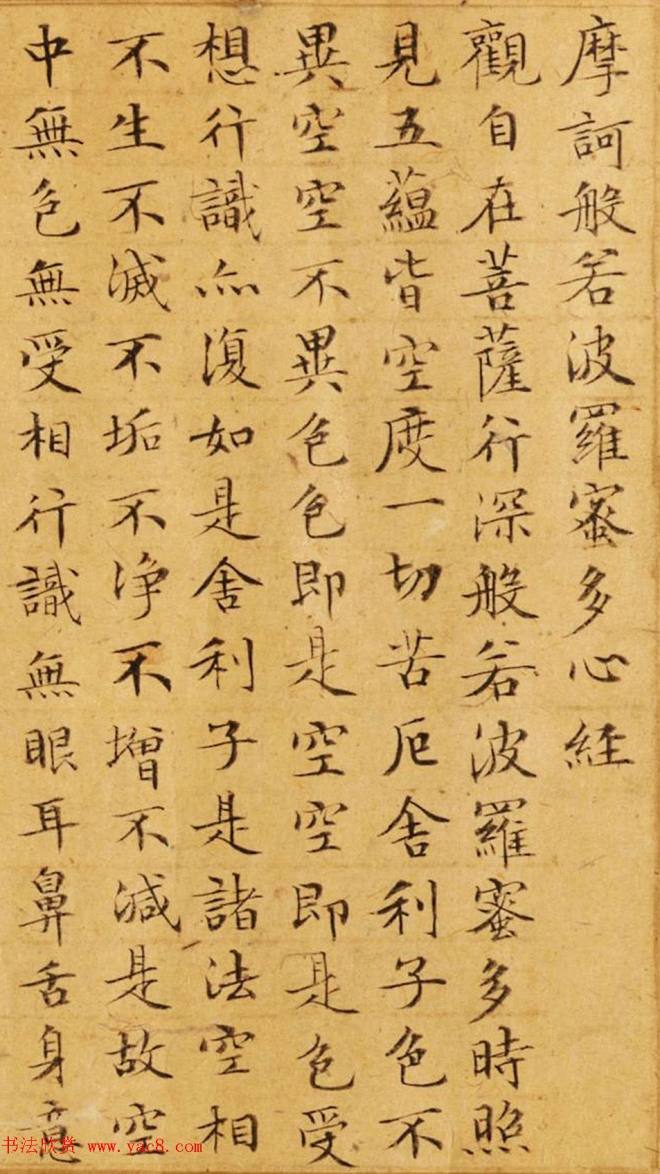 摩訶般若波羅蜜多心経
觀自在菩薩行深般若波羅蜜多時照
見五蘊皆空度一切苦厄舎利子色不
異空空不異色色即是空空即是色受
想行識亦復如是舎利子是諸法空相
不生不滅不垢不净不增不減是故空
中無色無受相行識無眼耳鼻舌身意
书法欣赏 www.yac8.com